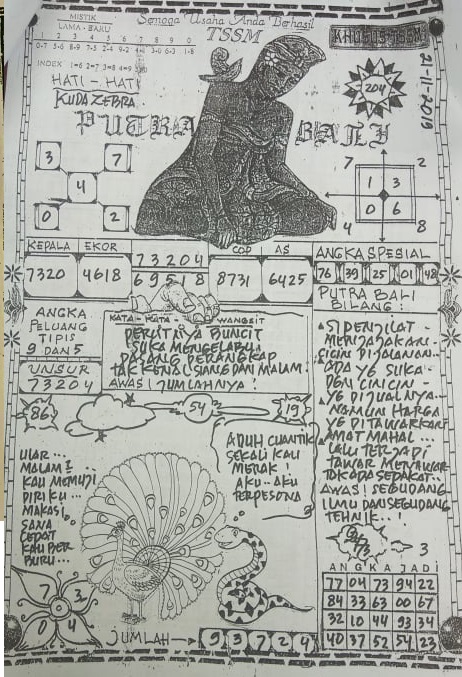 Semoga Usaha Anda Berhasil
TSSM
KHUSUS TSSM
21-11-2019
MISTIK
LAMA - BARU
1 2 3 4 5 6 7 8 9 0
0-7 5-6 8-9 7-5 2-4 9-2 4-1 3-0 6-3 1-8
INDEX 1=6 2=7 3=8 4=9
HATI - HATI
KUDA ZEBRA
PUTRA BALI
204
3 7
4
0 2
7 2
1 3
0 6
4 8
KEPALA EKOR
7320 4618
73204
69518
COP AS
8731 6425
ANGKA SPESIAL
76 39 25 01 48
ANGKA
PELUANG
TIPIS
9 DAN 5
UNSUR
73204
KATA - KATA - WANGSIT
PERUTNYA BUNCIT
SUKA MENGELABUI
PASANG PERANGKAP
TAK KENAL SIANG DAN MALAM
AWAS! JUMLAHNYA!
PUTRA BALI
BILANG:
SI PENJILAT -
MENJAJAKAN -
CICIN DI JALANAN..
ADA YG SUKA -
DGN CINCIN -
YG DI JUALNYA -
NAMUN HARGA
YG DI TAWARKAN
AMAT MAHAL...
LALU TERJADI
TAWAR MENAWAR
TDK ADA SEPAKAT..
AWAS! SEGUDANG
ILMU DAN SEGUDANG
TEHNIK..!
86
54
19
ULAR...
MALAM2
KAU MEMUJI
DIRIKU...
MAKASI,
SANA
CEPAT
KAU BER
BURU...
ADUH CUANTIK
SEKALI KAU
MERAK!
AKU.. AKU
TERPESONA
73
3
7 3
0 4
JUMLAH → 9 3 7 2 4
ANGKA JADI
77 04 73 94 22
84 33 63 00 67
32 10 44 93 34
40 37 52 54 23